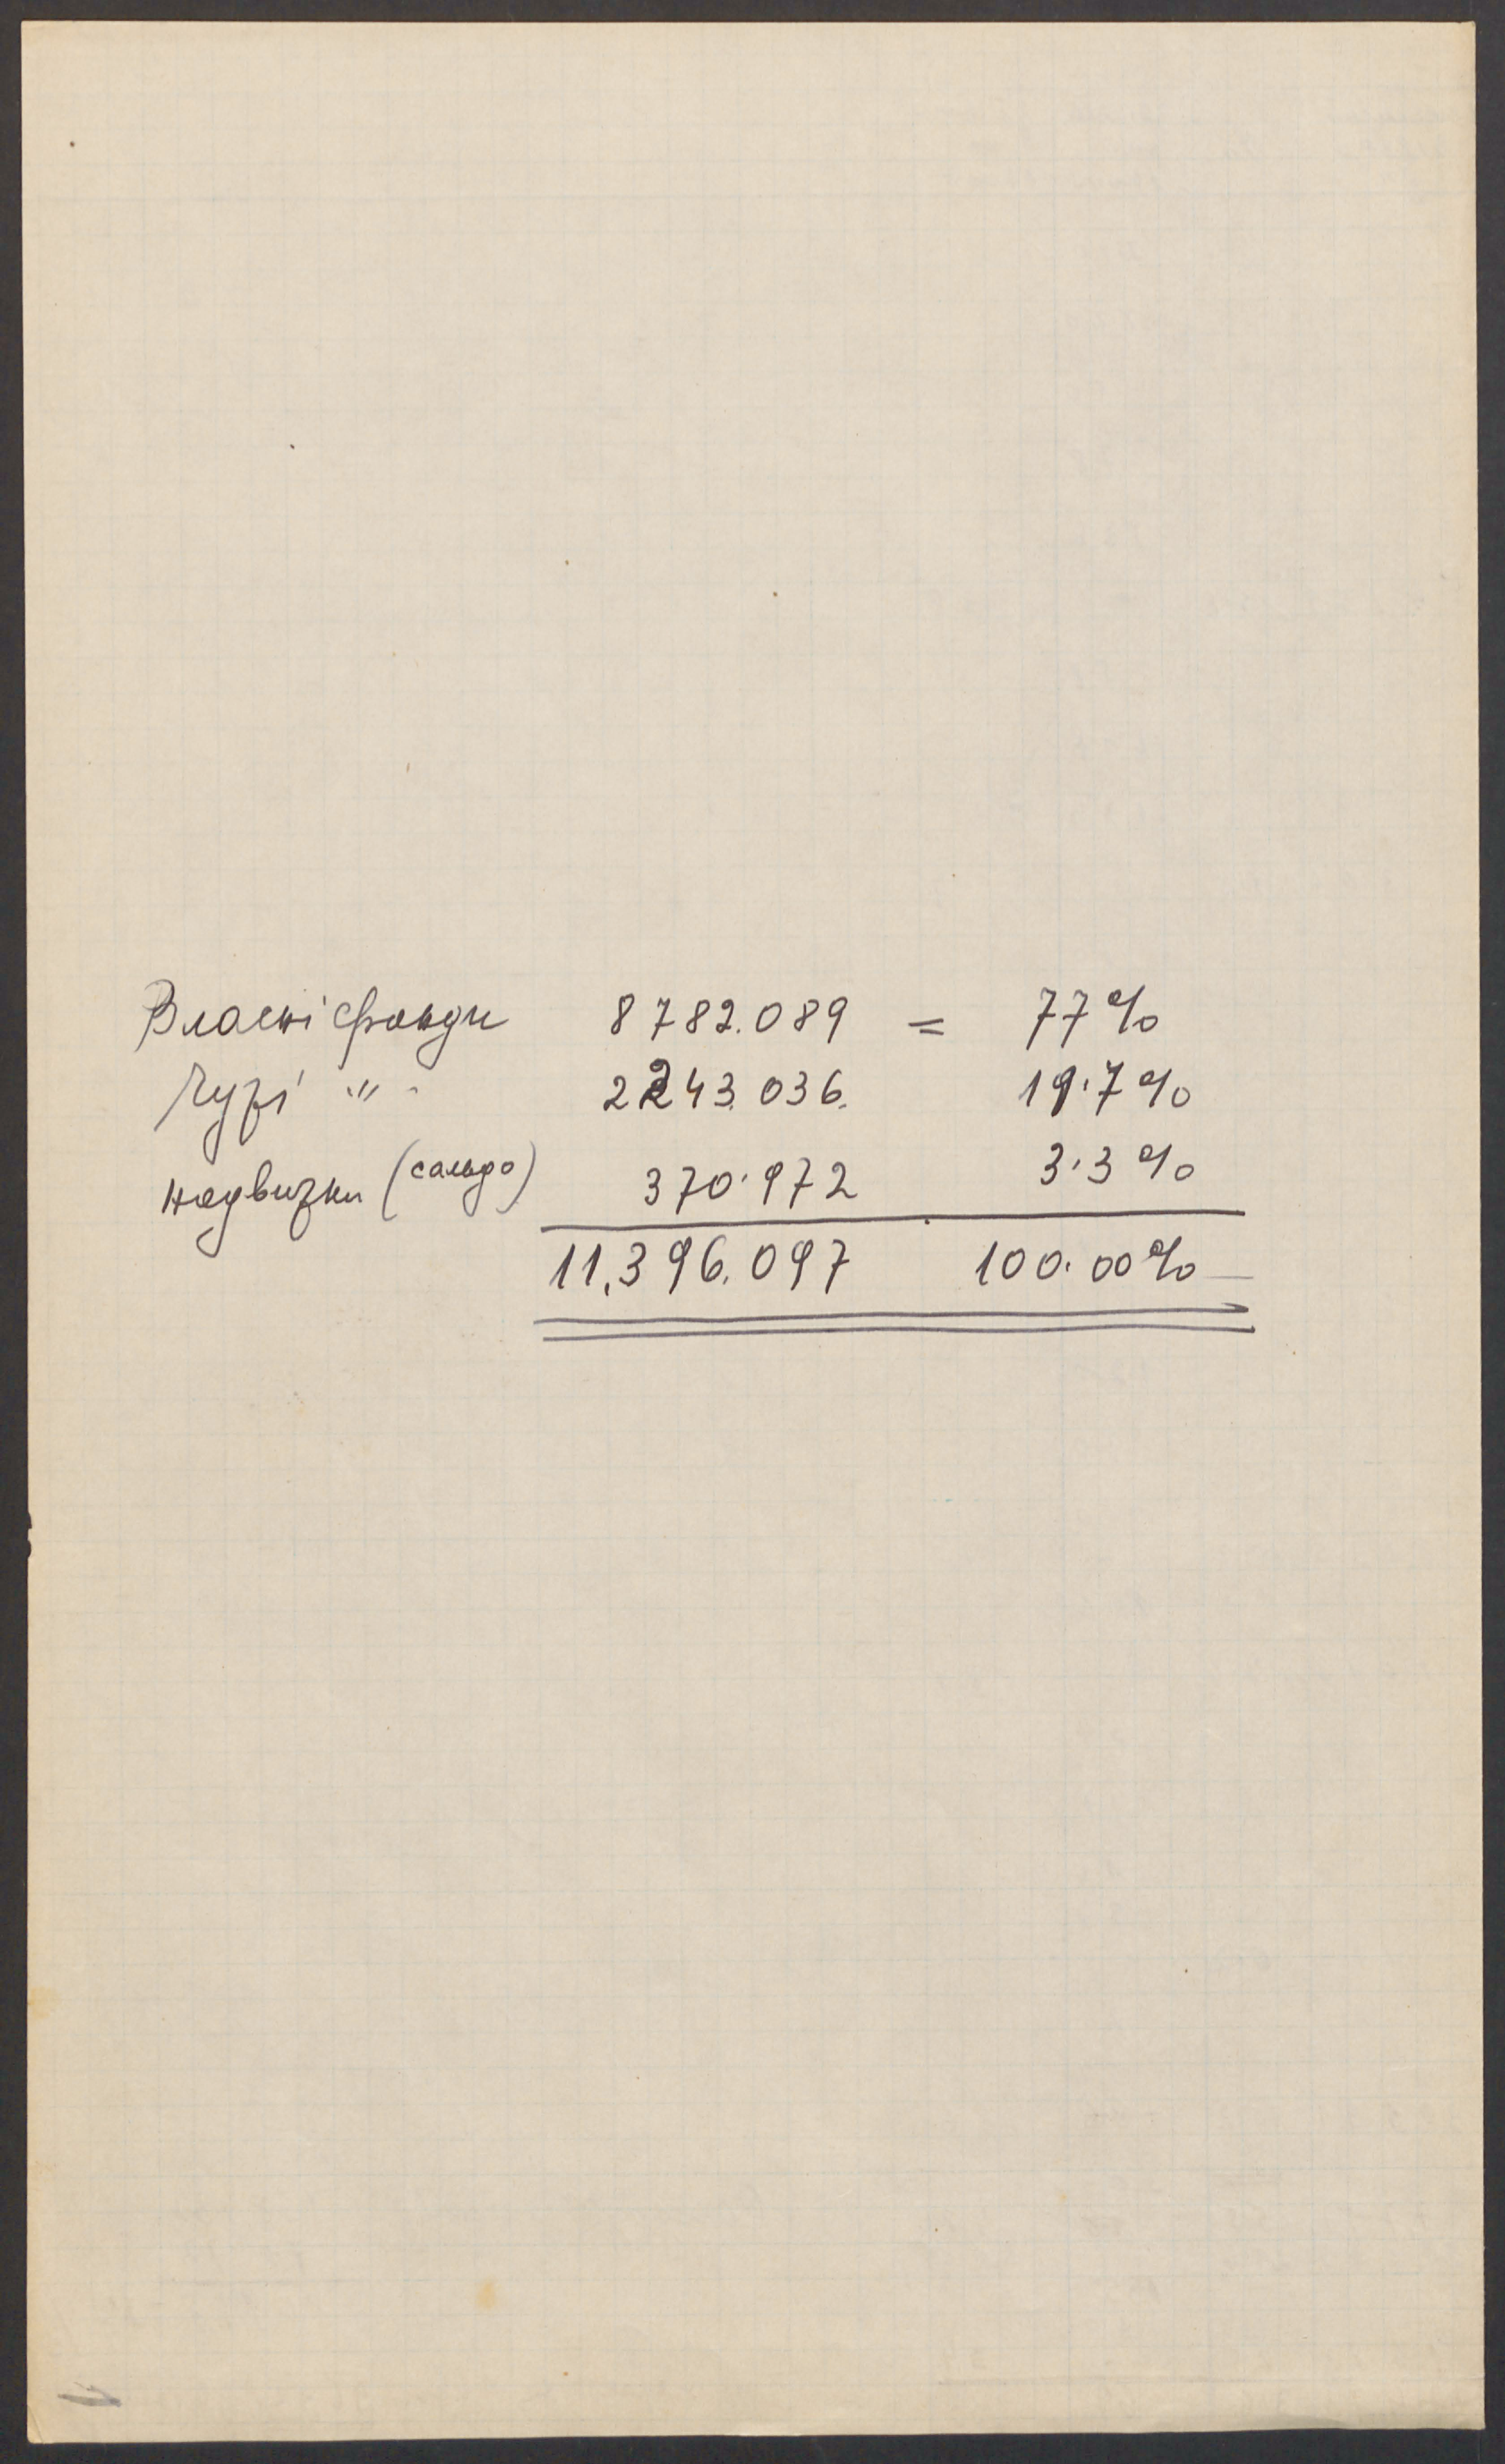 Власні фонди 8782.089 = 77%
Чужі -"- 2243.036. 19.7%
надвижки (сальдо) 370.972 3.3%
11,396.097 100.00%